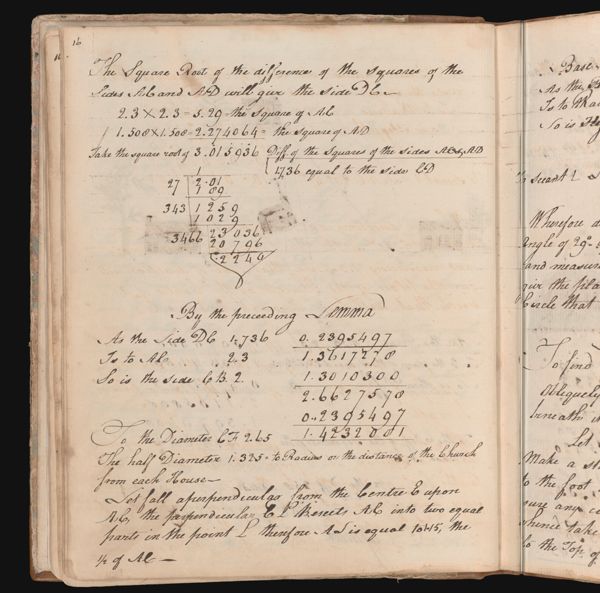 16
The Square Root of the difference of the squares of the
Sides AC and AD will give the side DC
2.3 × 2.3 = 5.29 the Square of AC
1.508 × 1.508 = 2.274064 = the Square of AD
Take the square root of 3.015936 Diff. of the Squares of the sides AC & AD
1736 equal to the side CD
1
27 2.01
1 89
343 1 259
1 029
3466 23036
20796
2240
By the preceeding Lemma
As the Side DC 1.736 0.2395497
Is to AC 2.3 1.3617278
So is the side CB 2. 1.3010300
2.6627578
0.2395497
To the Diameter CF 2.65 1.4232081
The half Diameter 1.325 = to Radius or the distance of the Church
from each House
Let fall a perpendicular from the Centre E upon
AC, the perpendicular E L bisects AC into two equal
parts in the point L therefore AL is equal to the
½ of AC
Base
As the
Is to
So is
Secant L
Wherefore
Angle of 29°
and measur
give the
Circle that
To find
Obliquely
beneath
Let
Make a
to the foot
sure any
whence take
to the Top of